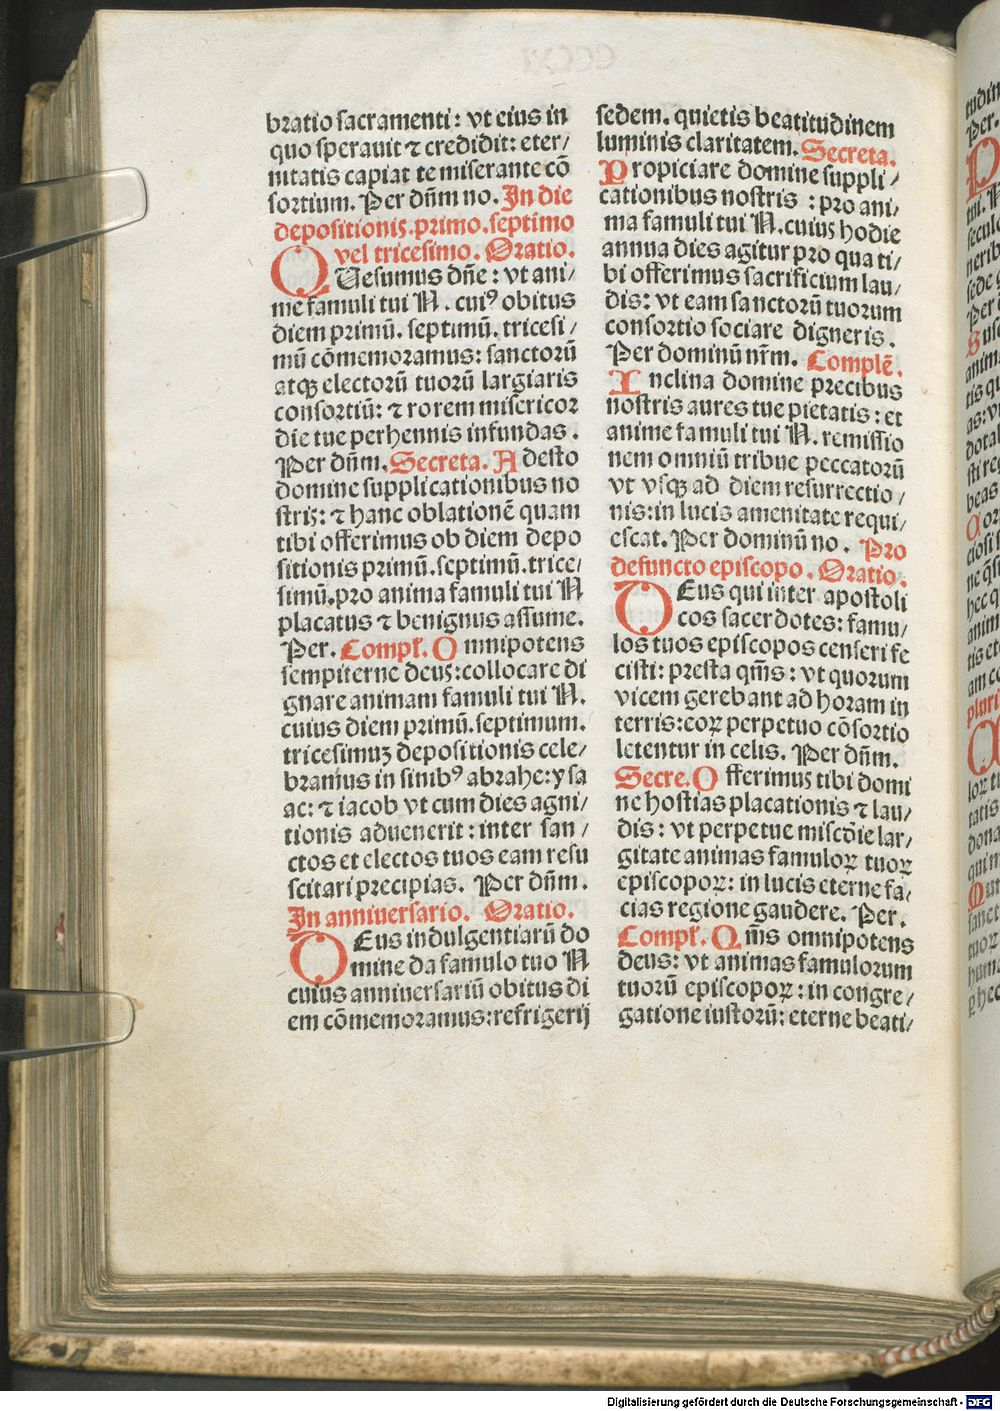 bratio sacramenti: vt eius in
quo sperauit ⁊ credidit: eter/
nitatis capiat te miserante cō
sortium. Per dn̄m no. In die
depositionis. primo. septimo
vel tricesimo. Oratio.
QUesumus dn̄e: vt ani/
me famuli tui N. cuiꝰ obitus
diem primū. septimū. tricesi/
mū cōmemoramus: sanctorū
atqꝫ electorū tuorū largiaris
consortiū: ⁊ rorem misericor
die tue perhennis infundas.
Per dn̄m. Secreta. Adesto
domine supplicationibus no
stris: ⁊ hanc oblationē quam
tibi offerimus ob diem depo
sitionis primū. septimū. trice/
simū. pro anima famuli tui N
placatus ⁊ benignus assume.
Per. Compł. Omnipotens
sempiterne deus: collocare di
gnare animam famuli tui N.
cuius diem primū. septimum.
tricesimuꝫ depositionis cele/
bramus in sinibꝰ abrahe: ysa
ac: ⁊ iacob vt cum dies agni/
tionis aduenerit: inter san/
ctos et electos tuos eam resu
scitari precipias. Per dn̄m.
In anniuersario. Oratio.
DEus indulgentiarū do
mine da famulo tuo N
cuius anniuersariū obitus di
em cōmemoramus: refrigerij
sedem. quietis beatitudinem
luminis claritatem. Secreta.
Propiciare domine suppli/
cationibus nostris: pro ani/
ma famuli tui N. cuius hodie
annua dies agitur pro qua ti/
bi offerimus sacrificium lau/
dis: vt eam sanctorū tuorum
consortio sociare digneris.
Per dominū nr̄m. Complē.
Inclina domine precibus
nostris aures tue pietatis: et
anime famuli tui N. remissio
nem omniū tribue peccatorū
vt vsqꝫ ad diem resurrectio/
nis: in lucis amenitate requi/
escat. Per dominū no. Pro
defuncto episcopo. Oratio.
DEus qui inter apostoli
cos sacerdotes: famu/
los tuos episcopos censeri fe
cisti: presta qm̄s: vt quorum
vicem gerebant ad horam in
terris: eoꝝ perpetuo cōsortio
letentur in celis. Per dn̄m.
Secre. Offerimus tibi domi
ne hostias placationis ⁊ lau/
dis: vt perpetue mīscōie lar/
gitate animas famuloꝝ tuoꝝ
episcopoꝝ: in lucis eterne fa/
cias regione gaudere. Per.
Compł. Qm̄s omnipotens
deus: vt animas famulorum
tuorū episcopoꝝ: in congre/
gatione iustorū: eterne beati/
Digitalisierung gefördert durch die Deutsche Forschungsgemeinschaft - DFG